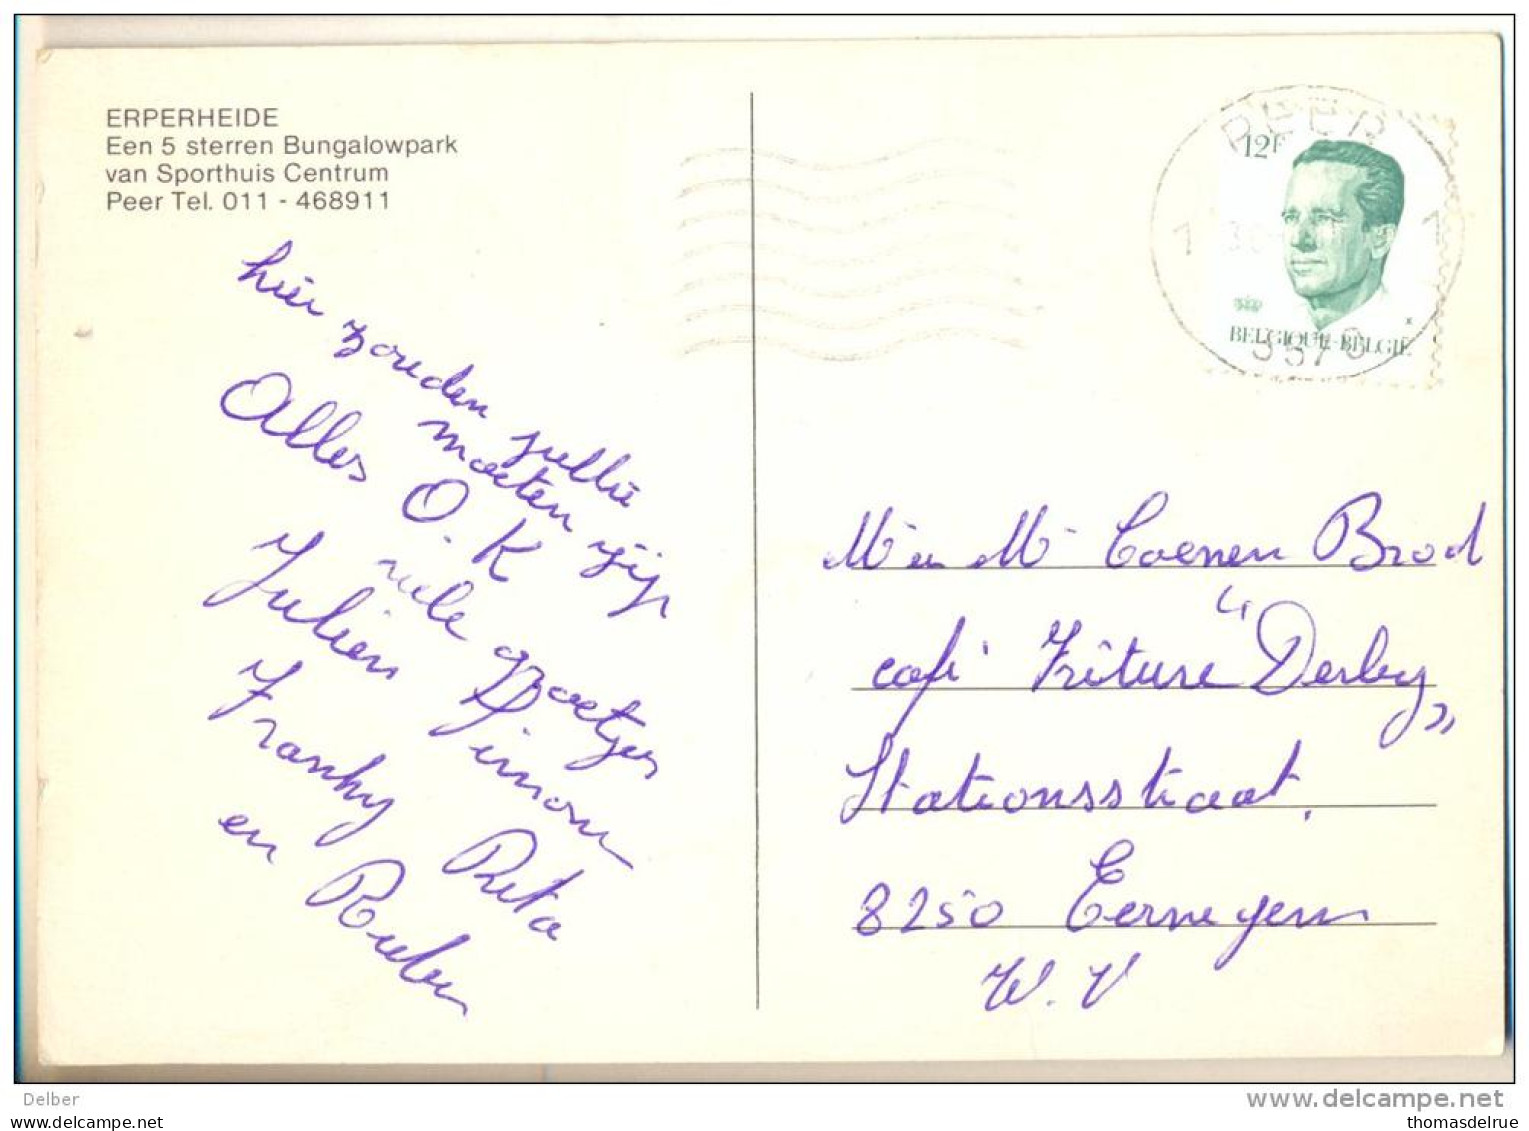 ERPERHEIDE
Een 5 sterren Bungalowpark
van Sporthuis Centrum
Peer Tel. 011 - 468911
hier zouden jullie
moeten zijn
Alles O.K
vele groetjes
Julien Simonn
Franky Rita
en Ruben
PEER
1 1
3570
12F
BELGIQUE-BELGIË
Mr en Mr Coenen Brod
café Friture "Derby"
Stationsstraat.
8250 Eernegem
W.V
Delber
www.delcampe.net
www.delcampe.net
thomasdelrue